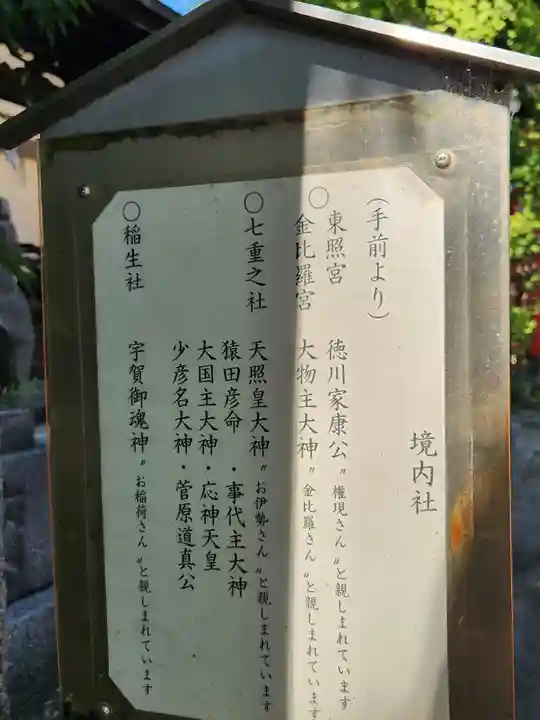 境内社
（手前より）
〇東照宮 徳川家康公〝権現さん〟と親しまれています
金比羅宮 大物主大神〝金比羅さん〟と親しまれています
〇七重之社 天照皇大神〝お伊勢さん〟と親しまれています
猿田彦命・事代主大神
大国主大神・応神天皇
少彦名大神・菅原道真公
〇稲生社 宇賀御魂神〝お稲荷さん〟と親しまれています